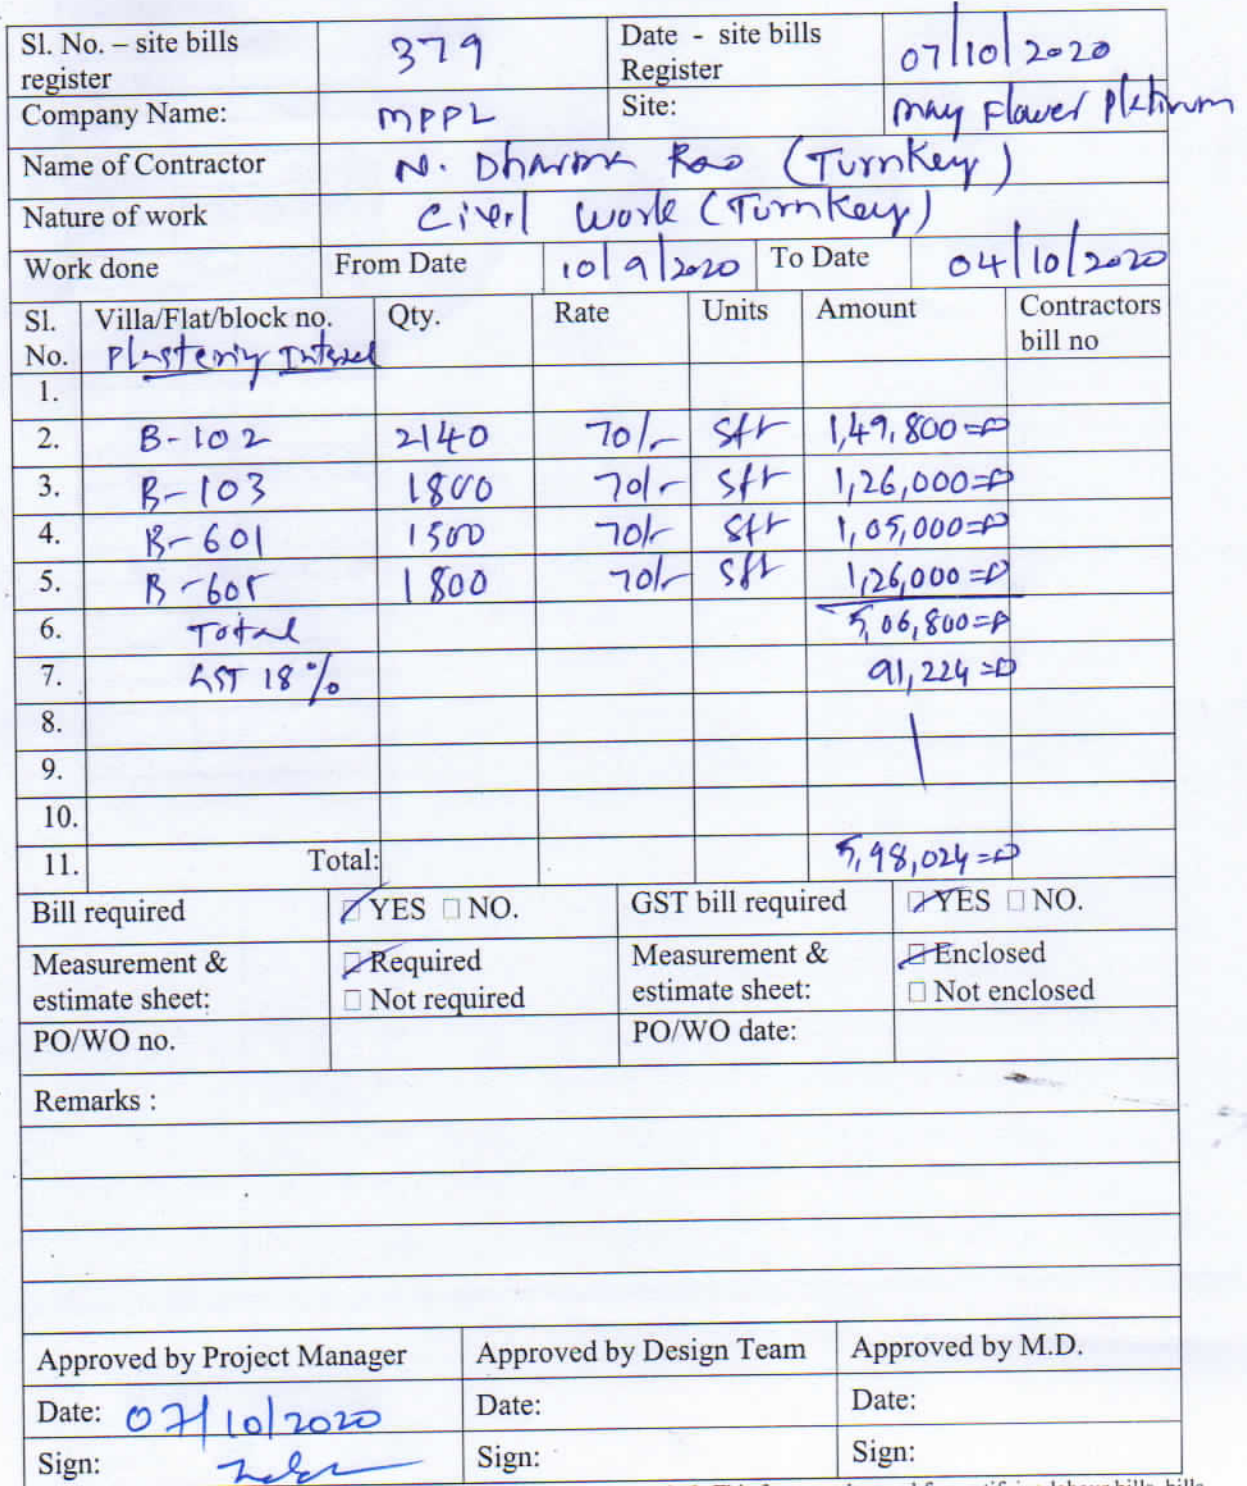 Sl. No. – site bills register 379 Date - site bills Register 07/10/2020
Company Name: MPPL Site: May Flower Platinum
Name of Contractor N. Dharma Rao (Turnkey)
Nature of work Civil Work (Turnkey)
Work done From Date 10/9/2020 To Date 04/10/2020
Sl. No. Villa/Flat/block no. Qty. Rate Units Amount Contractors bill no
Plastering Internal
1.
2. B-102 2140 70/- sft 1,49,800=00
3. B-103 1800 70/- sft 1,26,000=00
4. B-601 1500 70/- sft 1,05,000=00
5. B-605 1800 70/- sft 1,26,000=00
6. Total 5,06,800=00
7. GST 18% 91,224=00
8.
9.
10.
11. Total: 5,98,024=00
Bill required YES NO. GST bill required YES NO.
Measurement & estimate sheet: Required Not required Measurement & estimate sheet: Enclosed Not enclosed
PO/WO no. PO/WO date:
Remarks :
Approved by Project Manager Approved by Design Team Approved by M.D.
Date: 07/10/2020 Date: Date:
Sign: Sign: Sign: